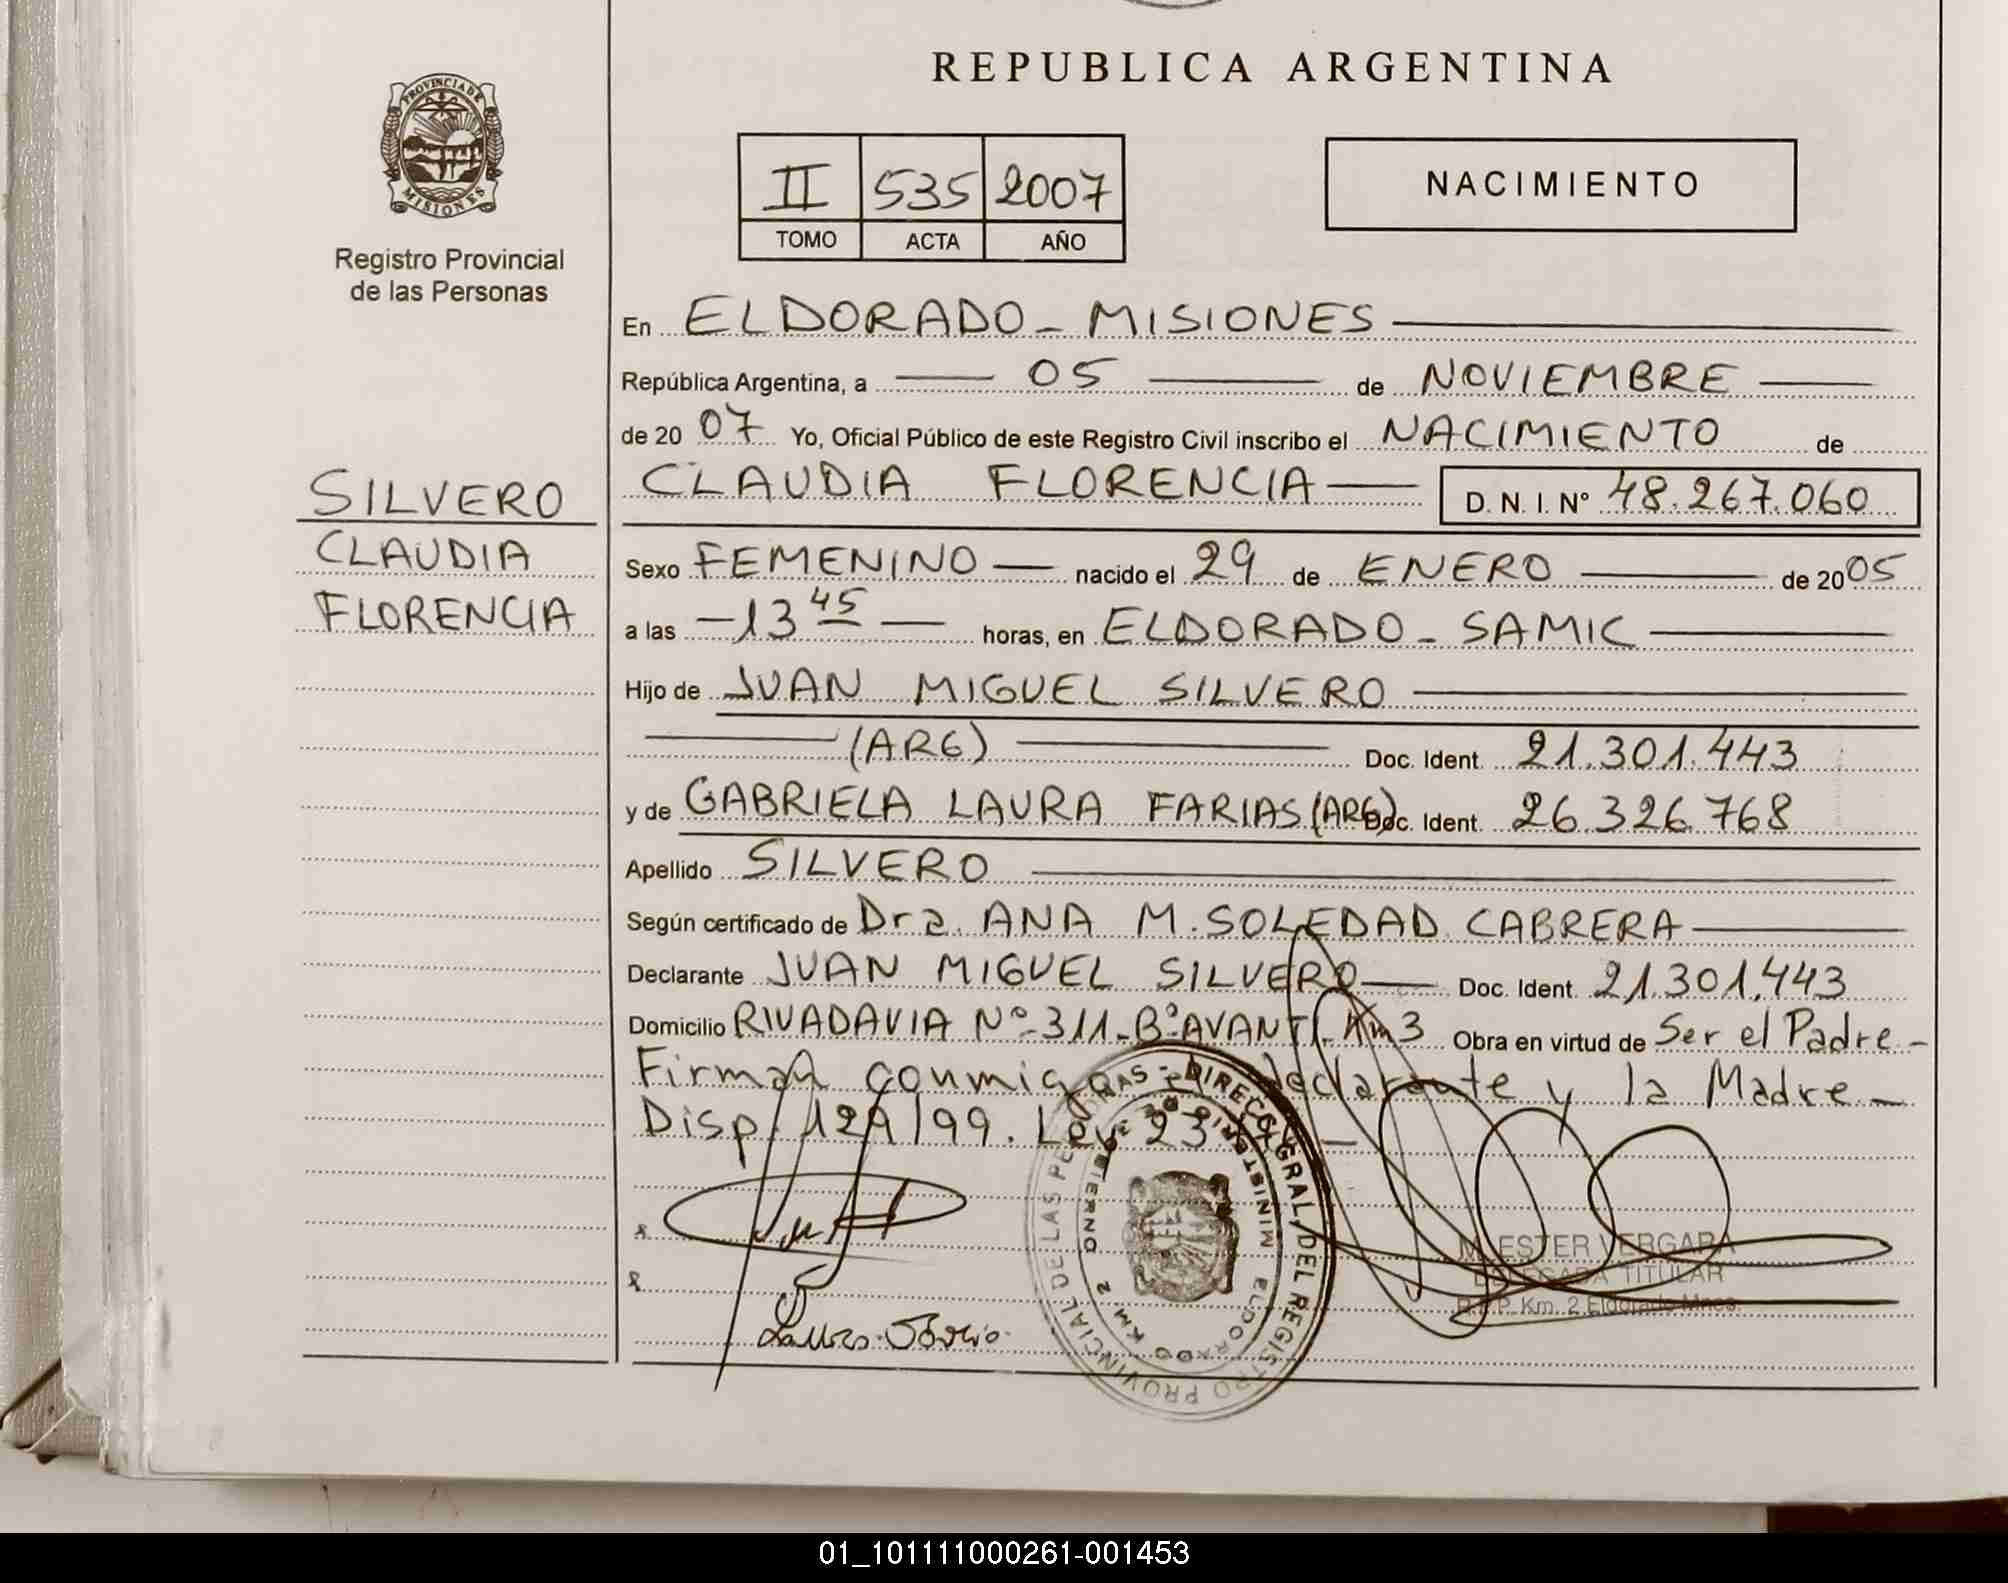 REPUBLICA ARGENTINA
PROVINCIA DE
MISIONES
Registro Provincial
de las Personas
II 535 2007
TOMO ACTA AÑO
NACIMIENTO
En ELDORADO - MISIONES
República Argentina, a 05 de NOVIEMBRE
de 2007 Yo, Oficial Público de este Registro Civil inscribo el NACIMIENTO de
SILVERO
CLAUDIA
FLORENCIA
CLAUDIA FLORENCIA D. N. I. Nº 48.267.060
Sexo FEMENINO nacido el 29 de ENERO de 2005
a las 13 45 horas, en ELDORADO - SAMIC
Hijo de JUAN MIGUEL SILVERO
(ARG) Doc. Ident. 21.301.443
y de GABRIELA LAURA FARIAS (ARG) Doc. Ident. 26.326.768
Apellido SILVERO
Según certificado de Dra. ANA M. SOLEDAD CABRERA
Declarante JUAN MIGUEL SILVERO Doc. Ident. 21.301.443
Domicilio RIVADAVIA Nº 311 - Bº AVANTI - Km 3 Obra en virtud de Ser el Padre -
Firman conmigo el declarante y la Madre -
Disp. 129/99. Ley 23
DIRECC. GRAL. DEL REGISTRO PROVINCIAL DE LAS PERSONAS
MINISTERIO DE GOBIERNO
ELDORADO KM 2
M. ESTER VERGARA
DELEGADA TITULAR
R.P.P. Km. 2 Eldorado Mnes.
01_101111000261-001453